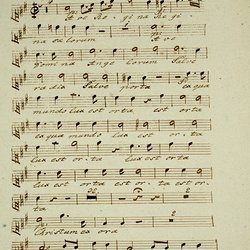 Ave Re gina Re gi
na cæ lorum Ave
Domina Ange lorum Salve
ra dix Salve porta ex qua
mundo Lux est orta est orta
ex qua mundo Lux est or ta
Lux est or ta Lux est or ta
Lux est or ta est or ta est or
ta
Christum ex ora